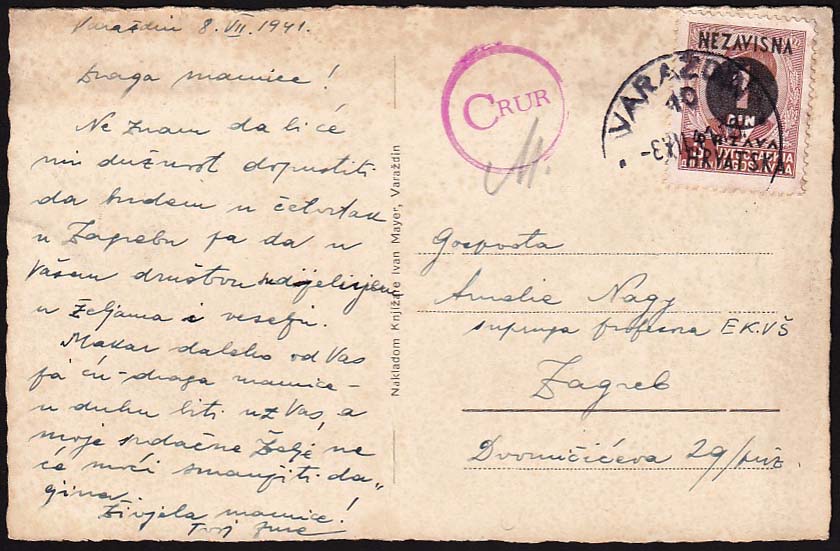 Varaždin 8. VII. 1941.
Draga mamice!
Ne znam da li će
mi dužnost dopustiti
da budem u četvrtak
u Zagrebu pa da u
Vašem društvu
u željama i veselju.
Makar daleko od Vas
ja ću - draga mamice -
u duhu biti uz Vas, a
moje srdačne želje ne
će moći smanjiti da„
ljina.
Živjela mamice!
Tvoj
Nakladom Knjižare Ivan Mayer, Varaždin
CRUR
M.
NEZAVISNA
1
DIN
HRVATSKA
VARAŽDIN
10
Gospođa
Amelie Nagy
supruga profesora EK.VŠ
Zagreb
29/